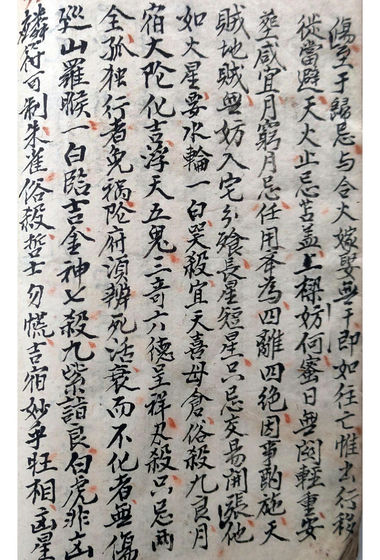 傷至于歸忌与合火嫁娶無干即如往亡惟出行移
徙當避天火止忌苫盖上樑妨何蜜日無関輕重安
塟咸宜月窮月忌任用奔為四離四絕因事酌施天
賊地賊無妨入宅分飱長星短星只忌交易開張他
如火星要水輪一白哭殺宜天喜母倉俗殺九良月
宿大陀化吉浮天五鬼三竒六德呈祥刃殺只忌兩
全孤独行者免禍陀府須辨死活衰而不化者無傷
廵山羅睺一白臨吉金神七殺九紫詣良白虎非凶
麟符可制朱雀俗殺哲士勿慌吉宿妙乎旺相凶星